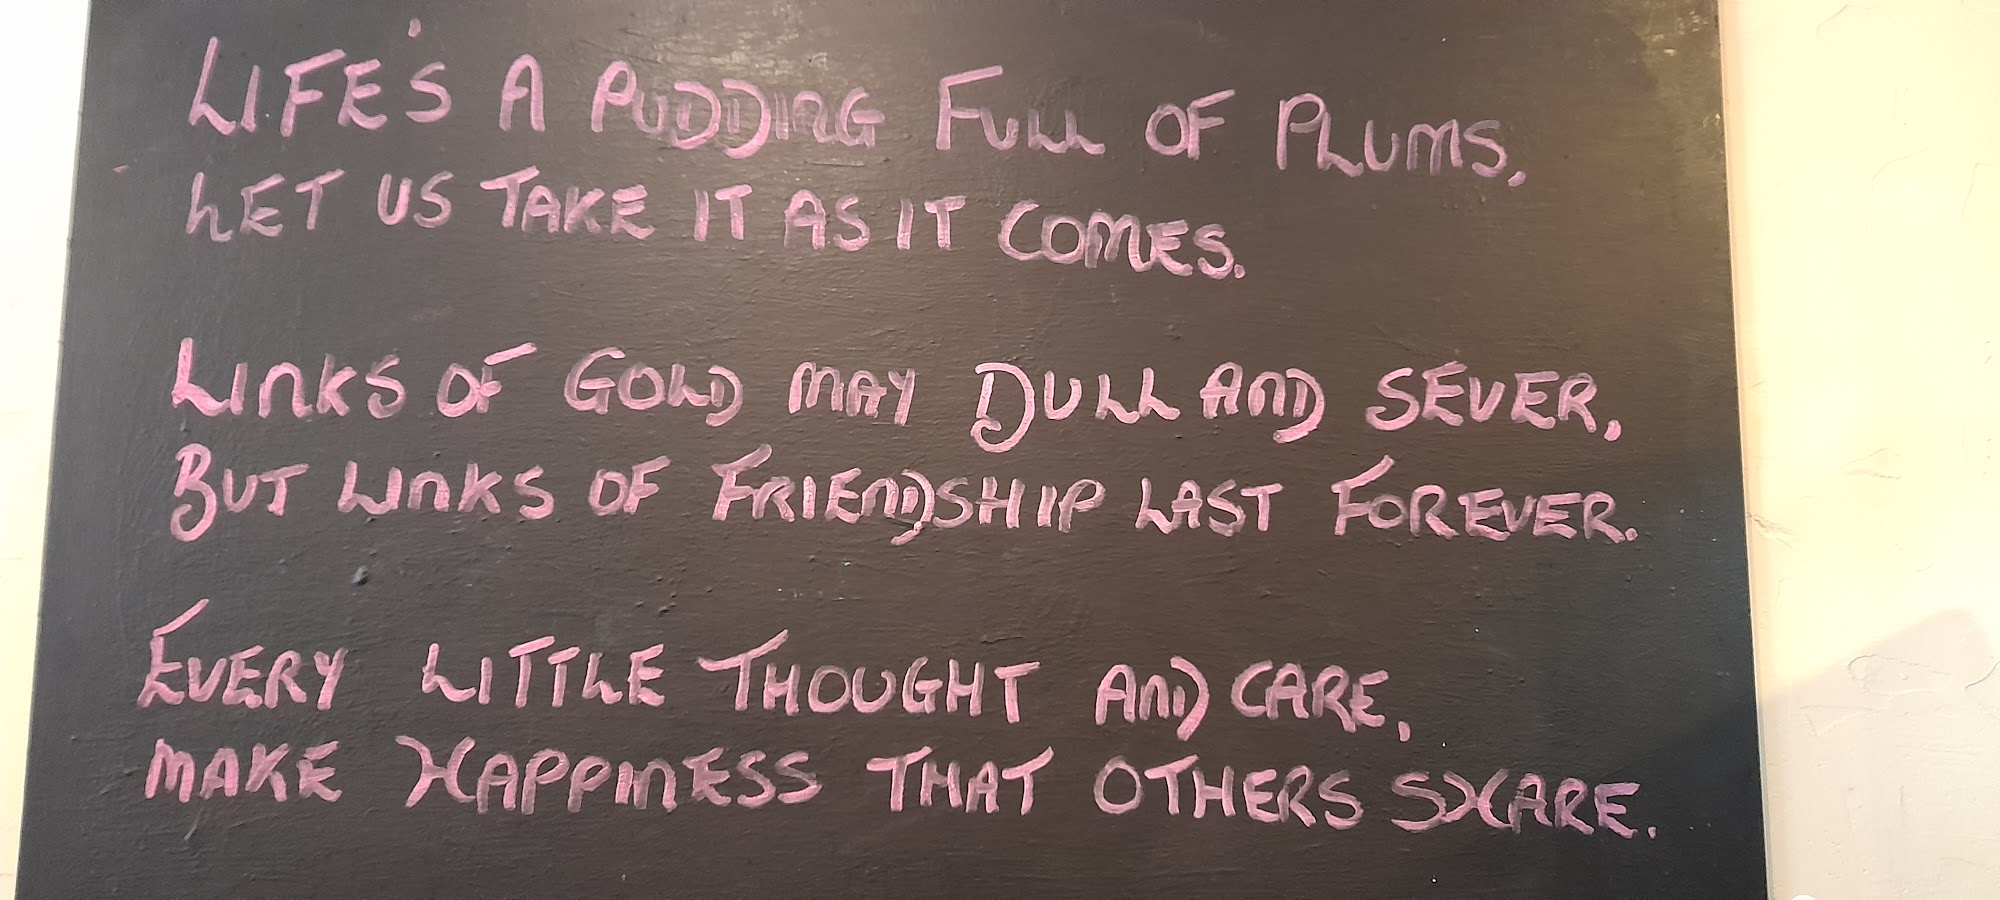 LIFE'S A PUDDING FULL OF PLUMS,
LET US TAKE IT AS IT COMES.
LINKS OF GOLD MAY DULL AND SEVER,
BUT LINKS OF FRIENDSHIP LAST FOREVER.
EVERY LITTLE THOUGHT AND CARE,
MAKE HAPPINESS THAT OTHERS SHARE.